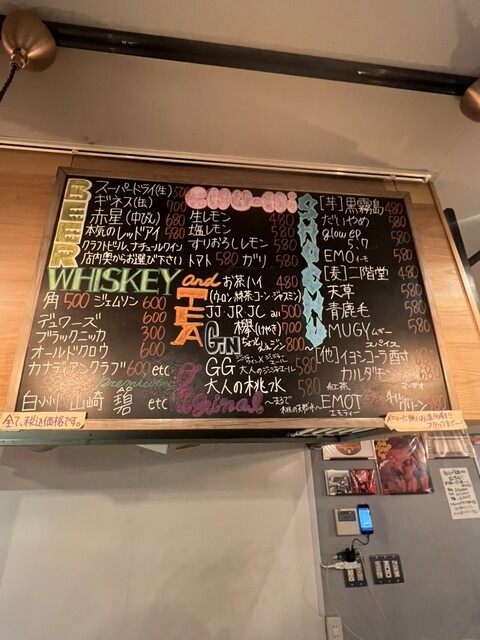 BEER
スーパードライ(生)
ギネス(缶) 700
赤星(中びん) 680
本気のレッドアイ 580
クラフトビール、ナチュールワイン
店内奥からお選び下さい
WHISKEY
角 500 ジェムソン 600
デュワーズ 600
ブラックニッカ 300
オールドクロウ 600
カナディアンクラブ 600 etc
Premium
白州 山崎 碧 etc
生レモン 480
塩レモン 580
すりおろしレモン 580
トマト 580 ガリ 580
and TEA
お茶ハイ 480
(ウーロン 緑茶 コーン ジャスミン)
JJ・JR・JC all 500
欅(けやき) 700
GIN
ちょっと
800
Original
GG 580
大人のジンジャエール
大人の桃水 580
SHOCHU
[芋]黒霧島 480
だいやめ 580
glow ep 5.7 580
EMOイーモ 580
[麦]二階堂 480
天草 580
青鹿毛 580
MUGYムギー 580
[他]イヨシコーラ酉寸 680
スパイス
カルダモン
紅茶
EMOT 580
エモティー
全て、税込価格です。